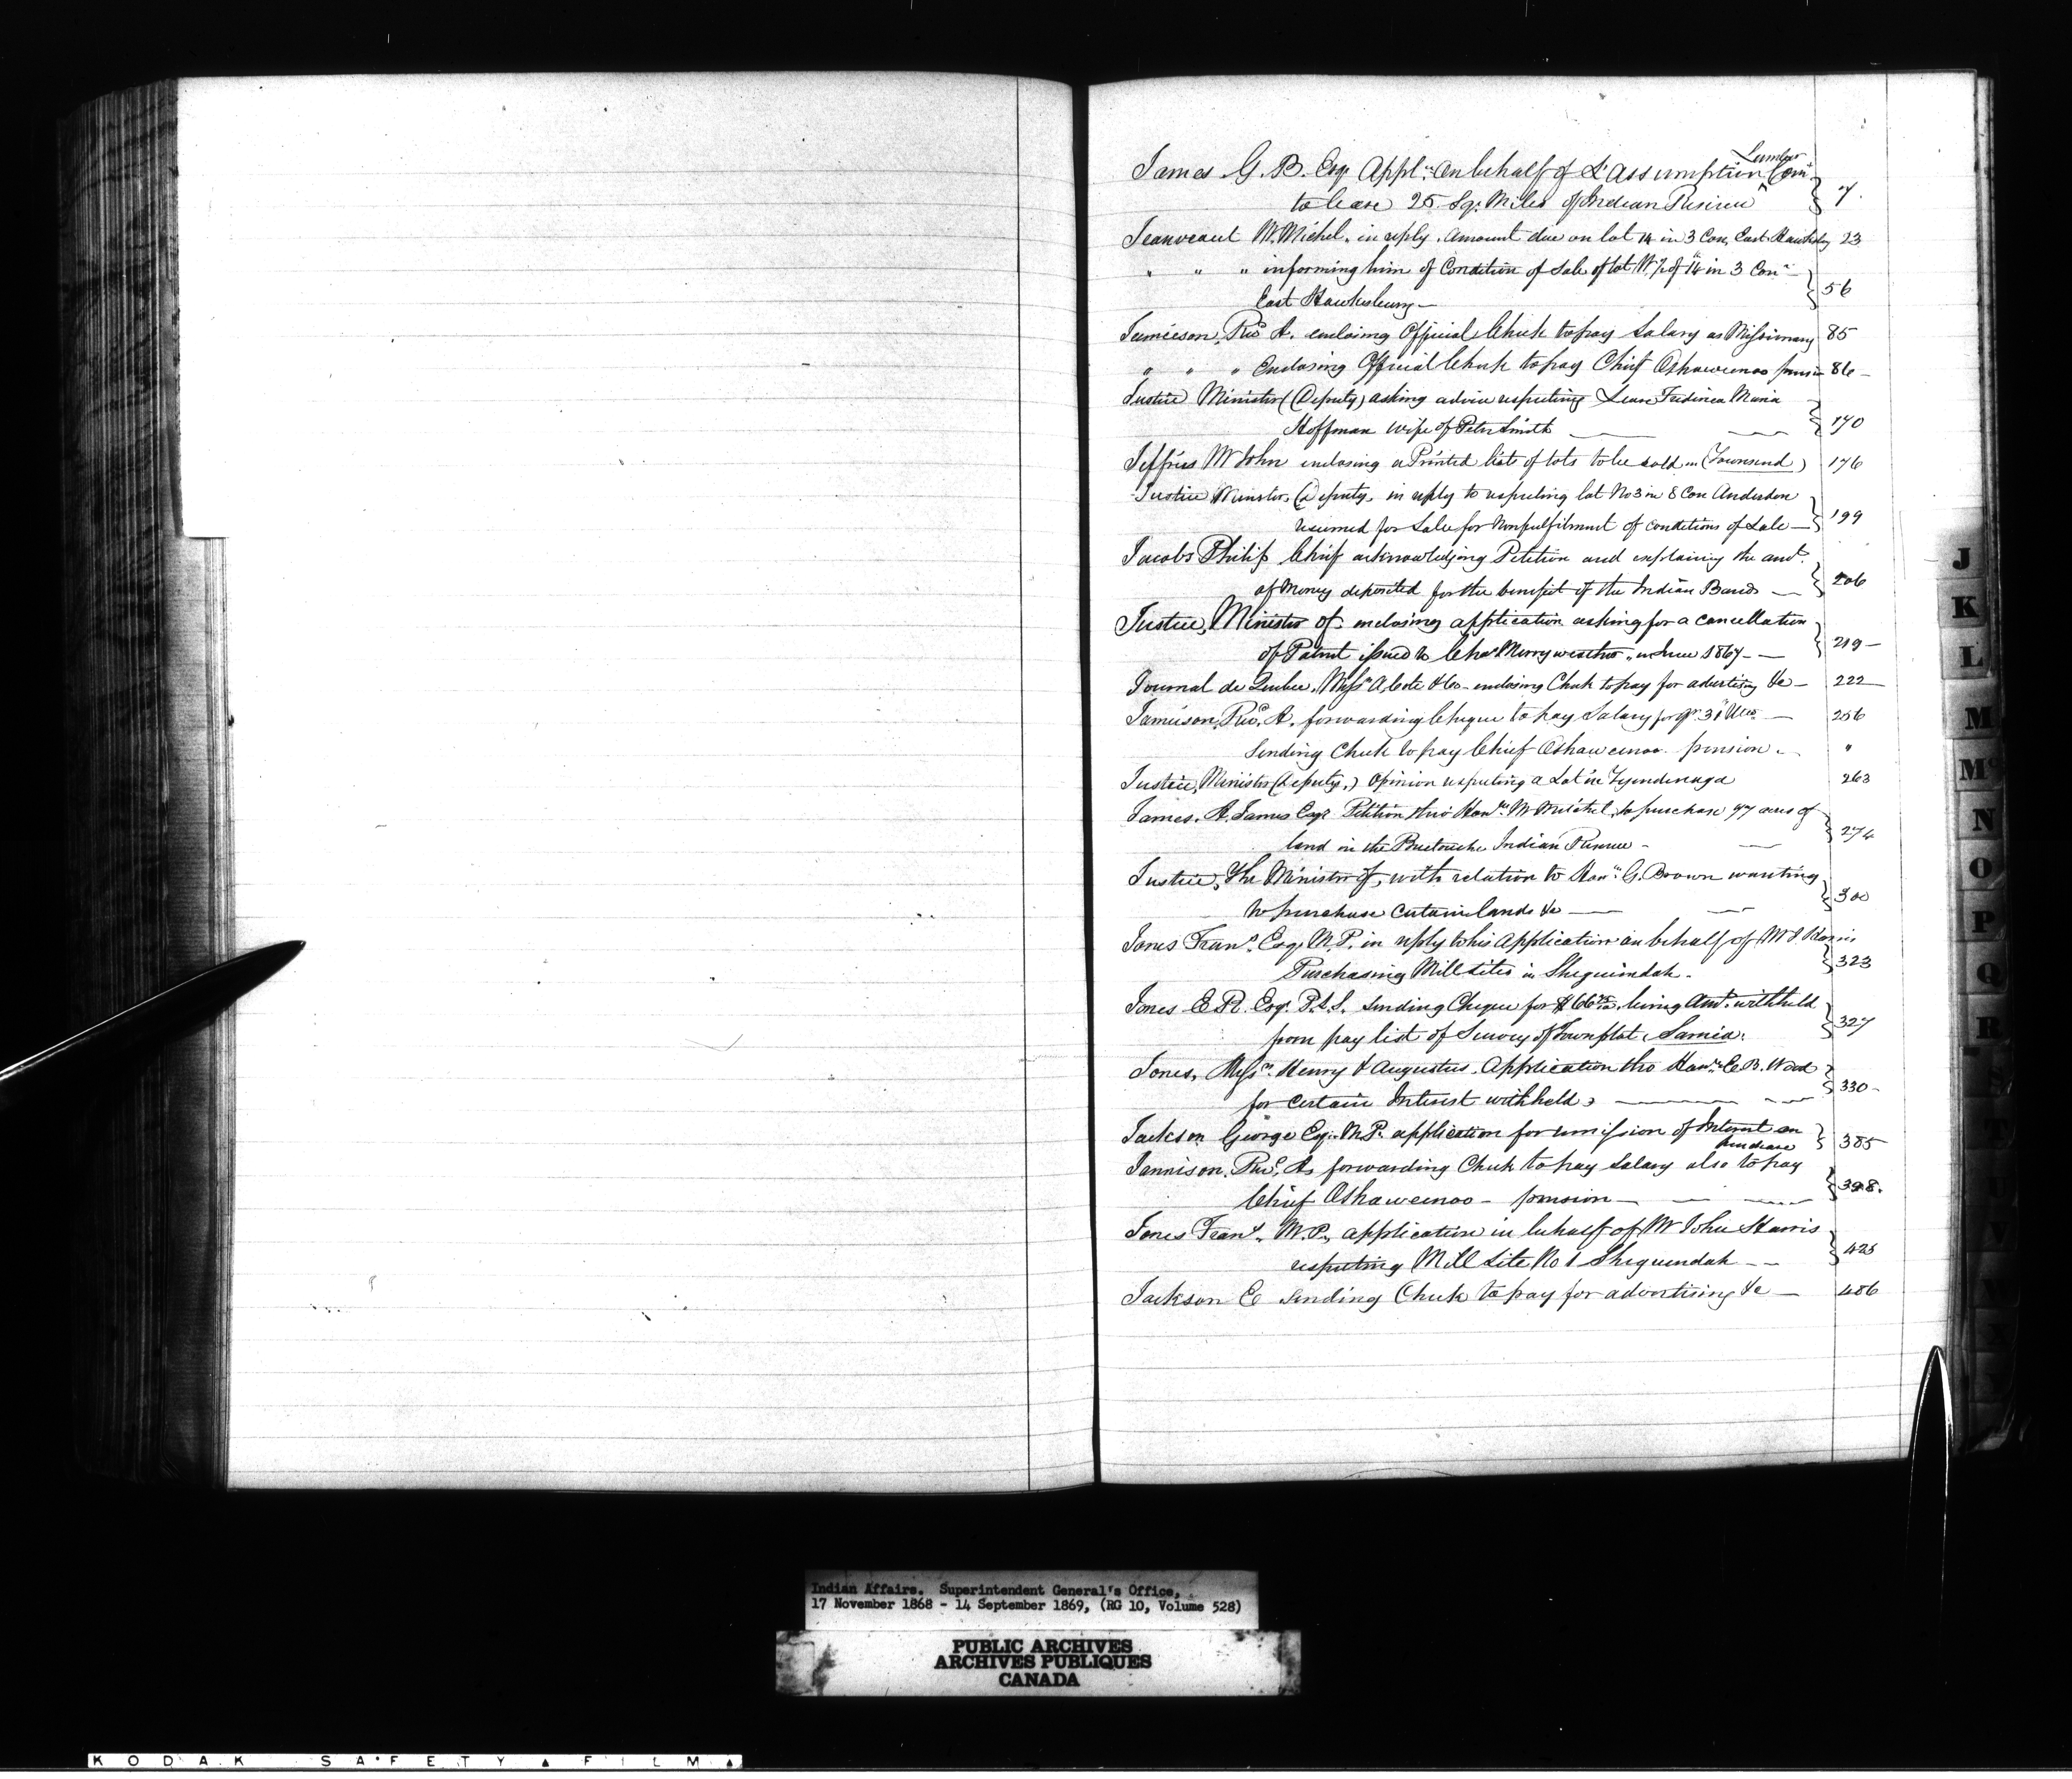 James G. B. Esqr Appln. on behalf of L'Assumption Lumber Com
to lease 25 Sqr. Miles of Indian Reserve } 7.
Jeanveaut Mr. Michel. in reply. Amount due on lot 14 in 3 Con, East Hawksby 23
" " " informing him of Condition of Sale of lot W ½ of 14 in 3 Con
East Hawkesbury — } 56
Jamieson, Revd A. enclosing Official Check to pay Salary as Missionary 85
" " " Enclosing Official Check to pay Chief Oshawanoo pension 86 —
Justice Minister (Deputy) asking advice respecting Lease Fredinca Maria
Hoffman wife of Peter Smith — } 170
Jeffries Mr John enclosing a Printed lists of lots to be sold in (Townsend) 176
Justice Minister, (Deputy, in reply to respecting lot No 3 in 8 Con Anderdon
resumed for Sale for Nonfulfilment of conditions of Sale — } 199
Jacobs Philip Chief acknowledging Petition and explaining the amt.
of Money deposited for the benefit of the Indian Bands — } 206
Justice, Minister of, enclosing application asking for a cancellation
of Patent issued to Chas Merryweather, in June 1867 — } 219 —
Journal de Quebec, Messrs A. Cote & Co — enclosing Check to pay for advertising &c — 222
Jamieson, Revd. A. forwarding Cheque to pay Salary for qr. 31 Decr — 256
Sending Check to pay Chief Oshawanoo pension — "
Justice, Minister (Deputy,) Opinion respecting a Lot in Tyendinaga 263
James. A. James Esqr Petition thro' Honble. Mr Mitchel, to purchase 97 acres of
land in the Buctouche Indian Reserve — } 274
Justice, The Minister of, with relation to Honble. G. Brown wanting
to purchase certain lands &c — } 300
Jones Frans. Esqr M.P. in reply to his Application on behalf of Mr J. Harris
Purchasing Mill sites in Sheguindah. } 323
Jones E R. Esqr. P.L.S. sending Cheque for $66 being amt. withheld
from pay list of Survey of Townplot, Sarnia. } 327
Jones, Messrs. Henry & Augustus. Application thro Honble C. B. Wood
for certain Interest withheld, — } 330 —
Jackson George Esqr. M.P. application for remission of Interest on
purchase } 385
Jamison, Revd, A. forwarding Check to pay Salary also to pay
Chief Oshawanoo — pension — } 398.
Jones Frans. M.P., application in behalf of Mr John Harris
respecting Mill Site No 1 Sheguindah — } 425
Jackson E sending Check to pay for advertising &c — 486
J
K
L
M
Mc
N
O
P
Q
R
S
T
Indian Affairs. Superintendent General's Office,
17 November 1868 - 14 September 1869, (RG 10, Volume 528)
PUBLIC ARCHIVES
ARCHIVES PUBLIQUES
CANADA
KODAK SAFETY FILM